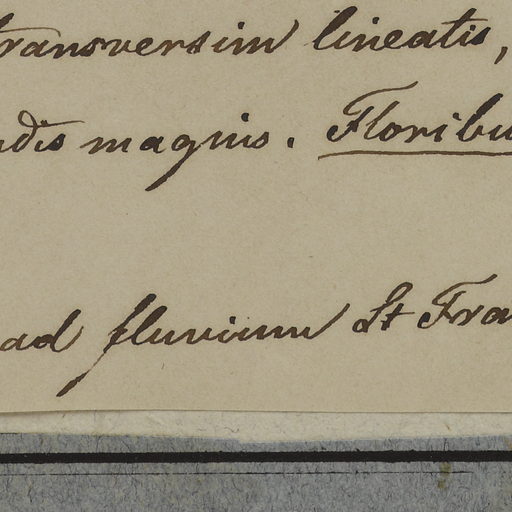 transversim lineatis,
dis magnis. Floribu
ad fluvium St Fra